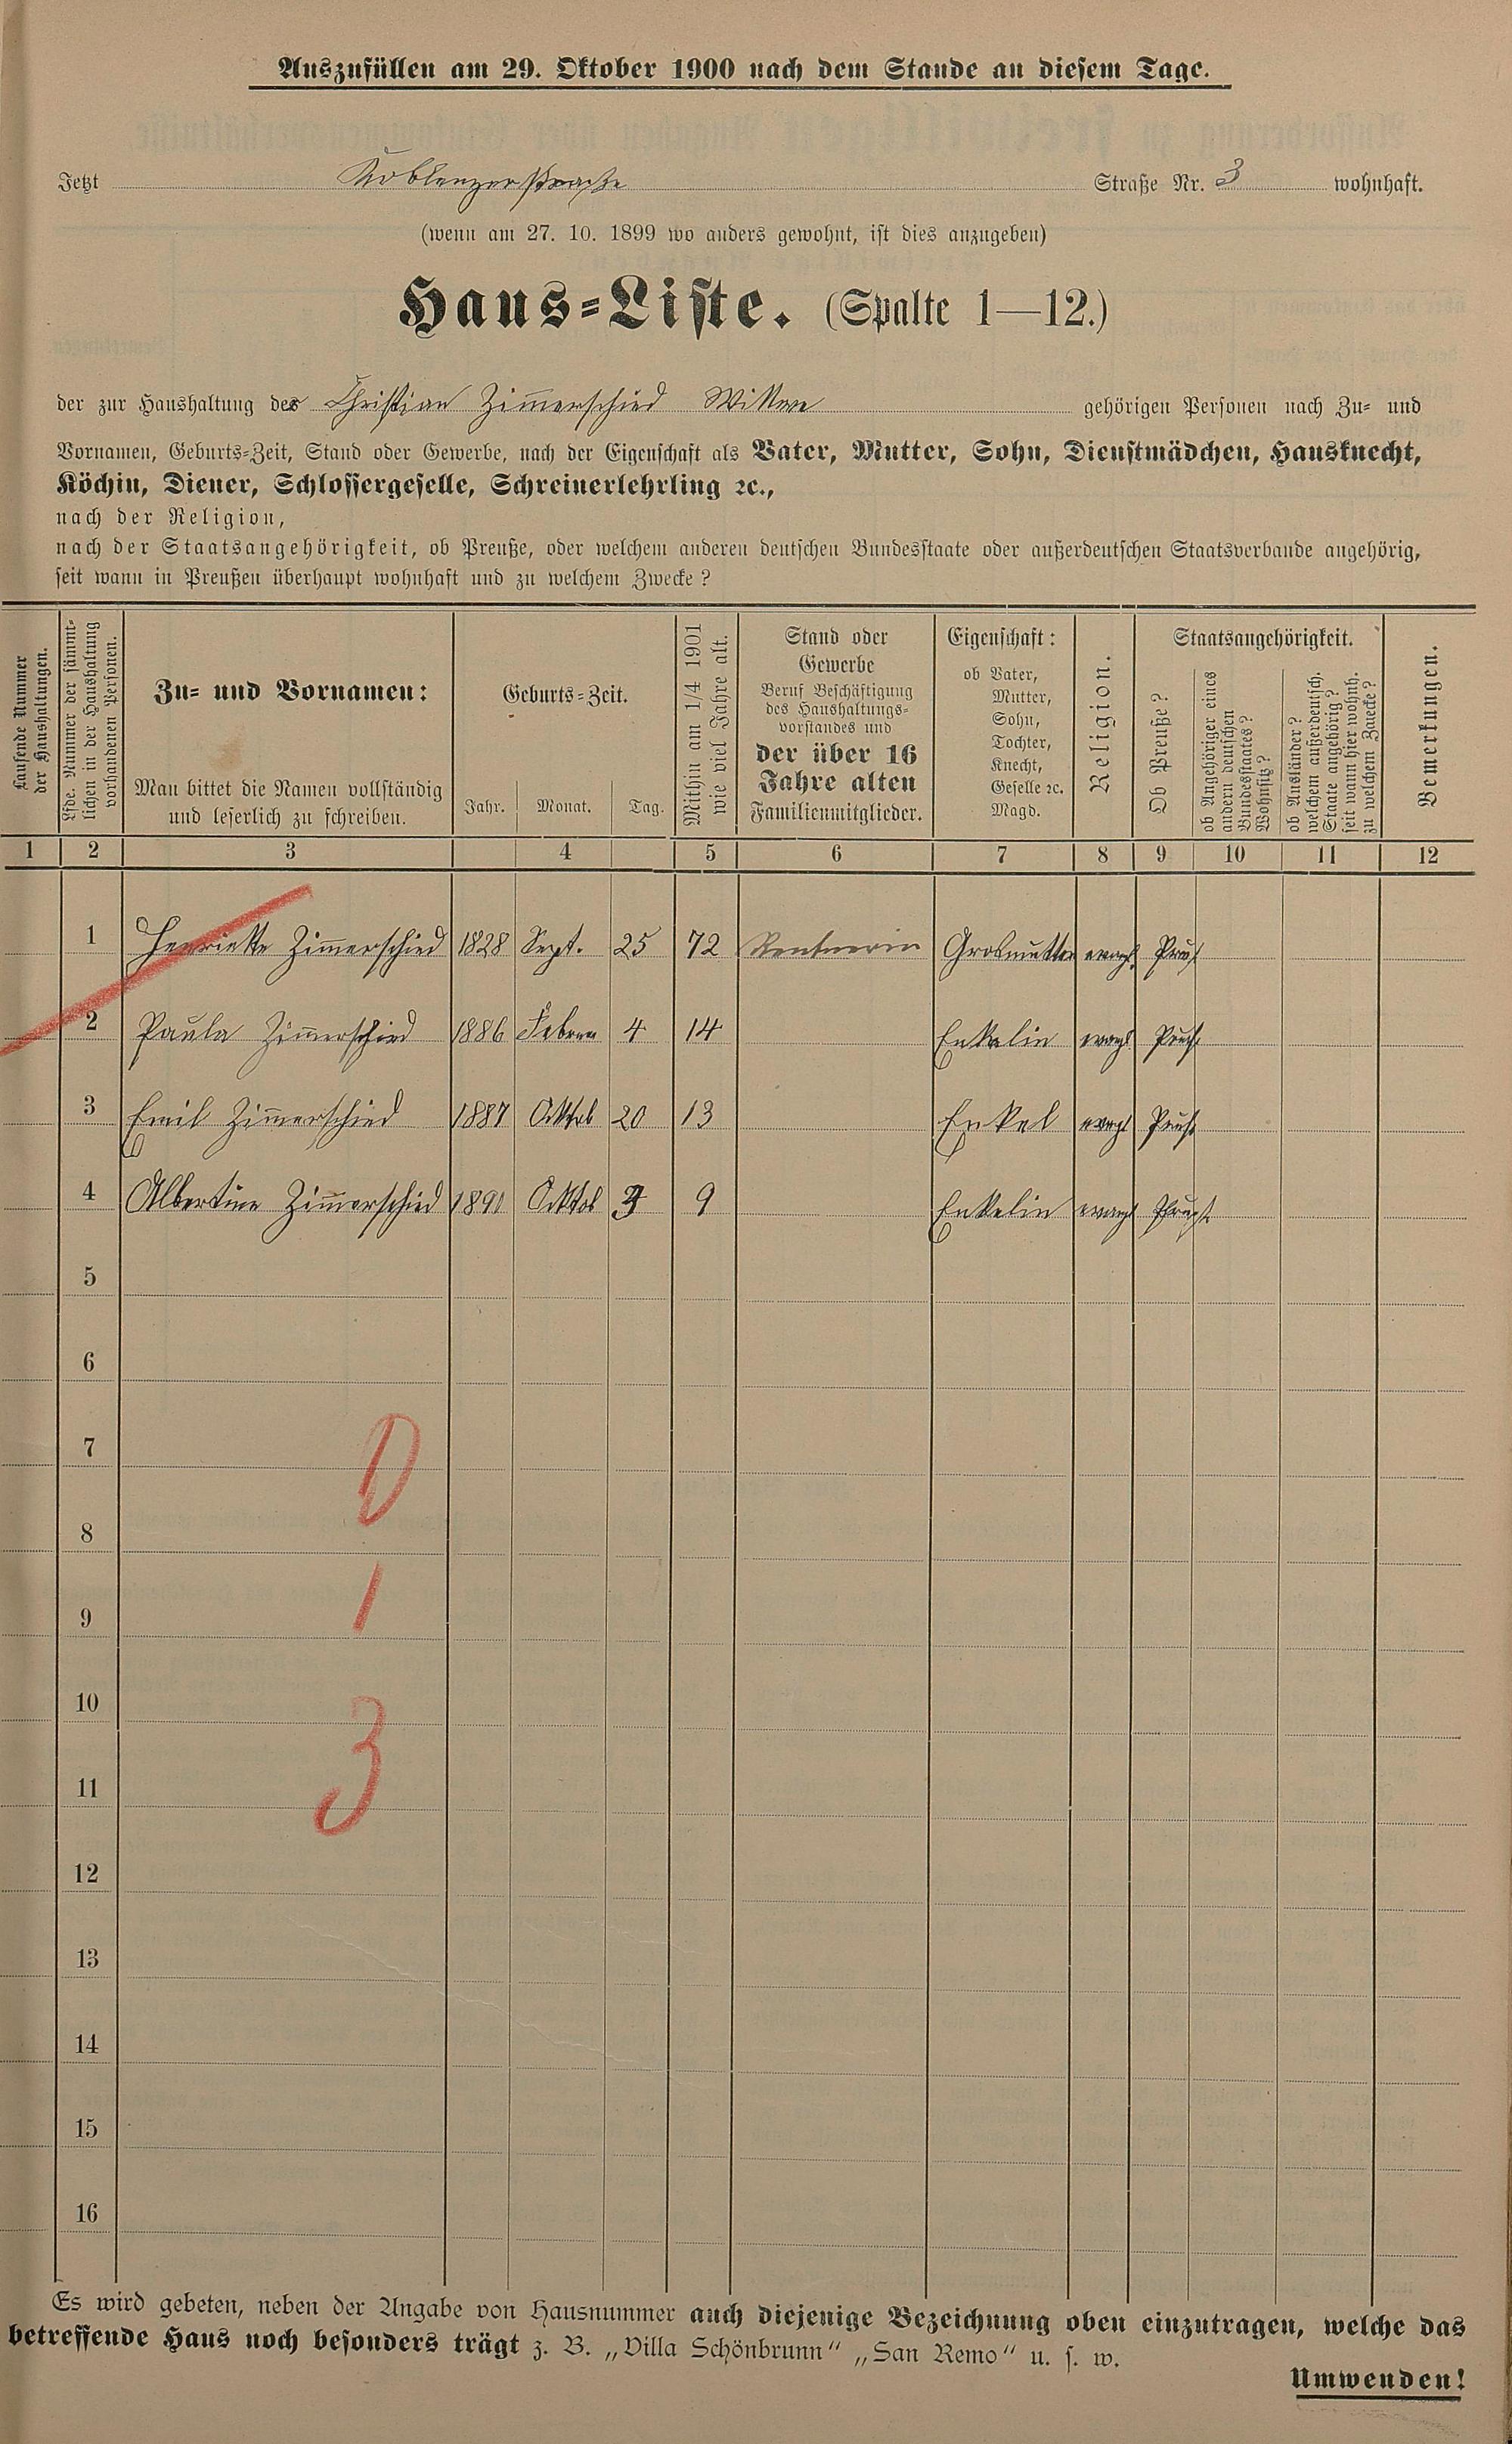 Auszufüllen am 29. Oktober 1900 nach dem Stande an diesem Tage.
Jetzt Koblenzerstraße Straße Nr. 3 wohnhaft.
(wenn am 27. 10. 1899 wo anders gewohnt, ist dies anzugeben)
Haus-Liste. (Spalte 1—12.)
der zur Haushaltung der Christian Zimmerschied Wittwe gehörigen Personen nach Zu- und
Vornamen, Geburts-Zeit, Stand oder Gewerbe, nach der Eigenschaft als Vater, Mutter, Sohn, Dienstmädchen, Hausknecht,
Köchin, Diener, Schlossergeselle, Schreinerlehrling ꝛc.,
nach der Religion,
nach der Staatsangehörigkeit, ob Preuße, oder welchem anderen deutschen Bundesstaate oder außerdeutschen Staatsverbande angehörig,
seit wann in Preußen überhaupt wohnhaft und zu welchem Zwecke?
Laufende Nummer
der Haushaltungen.
Lfde. Nummer der sämmt-
lichen in der Haushaltung
vorhandenen Personen.
Zu- und Vornamen:
Man bittet die Namen vollständig
und leserlich zu schreiben.
Geburts-Zeit.
Jahr. Monat. Tag.
Mithin am 1/4 1901
wie viel Jahre alt.
Stand oder
Gewerbe
Beruf Beschäftigung
des Haushaltungs-
vorstandes und
der über 16
Jahre alten
Familienmitglieder.
Eigenschaft:
ob Vater,
Mutter,
Sohn,
Tochter,
Knecht,
Geselle ꝛc.
Magd.
Religion.
Staatsangehörigkeit.
Ob Preuße?
ob Angehöriger eines
andern deutschen
Bundesstaates?
Wohnsitz?
ob Ausländer?
welchem außerdeutsch.
Staate angehörig?
seit wann hier wohnh.
zu welchem Zwecke?
Bemerkungen.
1 2 3 4 5 6 7 8 9 10 11 12
1 Henriette Zimmerschied 1828 Sept. 25 72 Rentnerin Grosmutter evangl. Preuß
2 Paula Zimmerschied 1886 Februar 4 14 Enkelin evangl. Preuß
3 Emil Zimmerschied 1887 Oktob 20 13 Enkel evangl Preuß
4 Albertine Zimmerschied 1891 Oktob 3 9 Enkelin evangl Preuß
5
6
7
0
8
1
9
10
3
11
12
13
14
15
16
Es wird gebeten, neben der Angabe von Hausnummer auch diejenige Bezeichnung oben einzutragen, welche das
betreffende Haus noch besonders trägt z. B. „Villa Schönbrunn“ „San Remo“ u. s. w.
Umwenden!